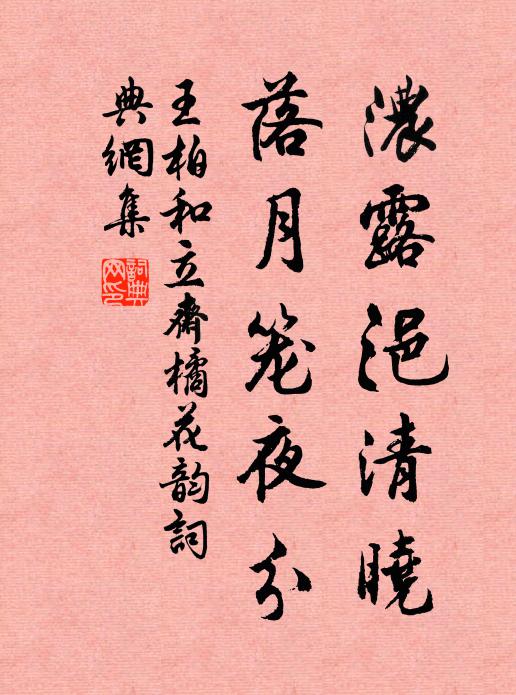 濃露浥清曉
落月笼夜分
王柏和立齋橘花韵詞
典網集
詞典
网印